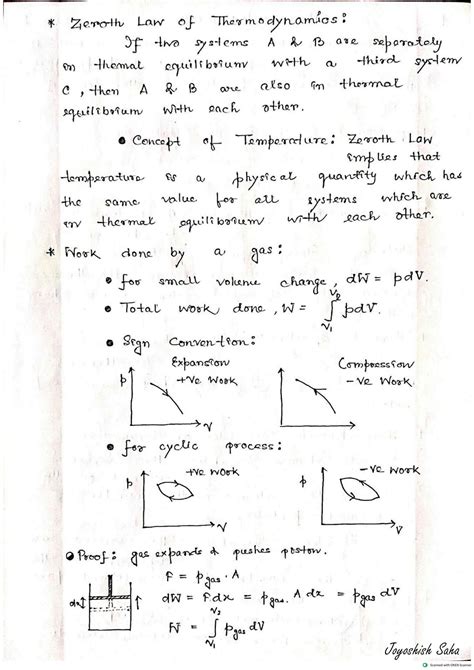 * Zeroth Law of Thermodynamics:
If two systems A & B are separately
in thermal equilibrium with a third system
C, then A & B are also in thermal
equilibrium with each other.
• Concept of Temperature: Zeroth Law
implies that
temperature is a physical quantity which has
the same value for all systems which are
in thermal equilibrium with each other.
* Work done by a gas:
• for small volume change, dW = pdV.
• Total work done, W = ∫_{V₁}^{V₂} pdV.
• Sign Convention:
Expansion Compression
+ve work -ve work
p V V
• for cyclic process:
+ve work -ve work
p V p V
• Proof: gas expands & pushes piston.
F = p_gas · A
dW = Fdx = p_gas · A dx = p_gas dV
W = ∫_{V₁}^{V₂} p_gas dV
Joyoshish Saha
Scanned with OKEN Scanner